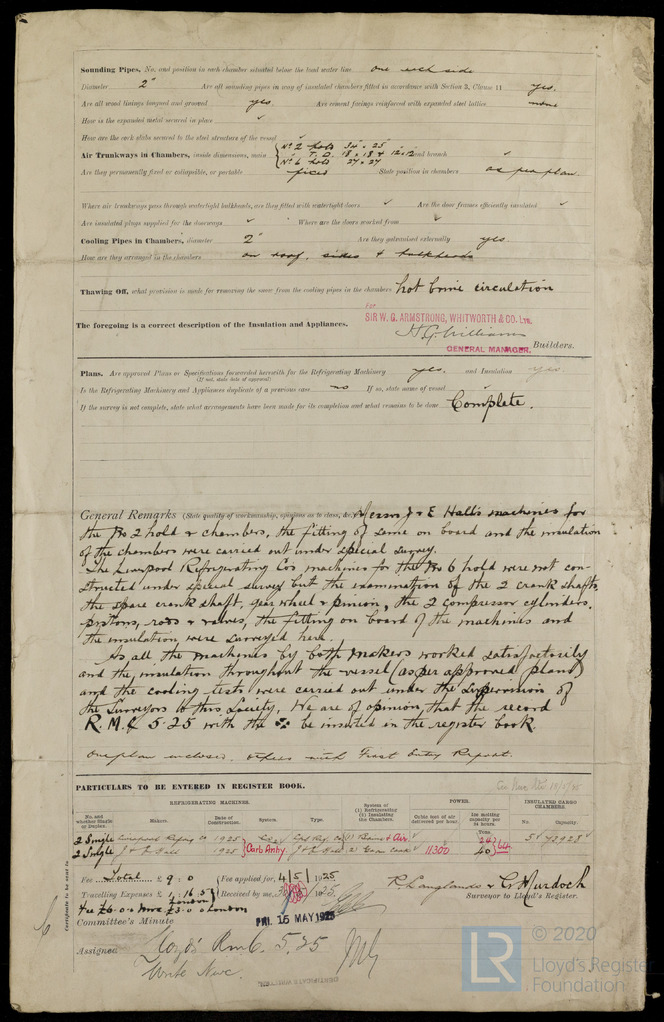 Sounding Pipes, No. and position in each chamber situated below the load water line one each side
Diameter 2" Are all sounding pipes in way of insulated chambers fitted in accordance with Section 3, Clause 11 yes.
Are all wood linings tongued and grooved yes. Are cement facings reinforced with expanded steel lattice none
How is the expanded metal secured in place ✓
How are the cork slabs secured to the steel structure of the vessel ✓
Air Trunkways in Chambers, inside dimensions, main No 2 hold 34 × 25 T.D. 18 × 18 & 12 × 12 and branch ✓
No 6 hold 27 × 27
Are they permanently fixed or collapsible, or portable fixed State position in chambers as per plan.
Where air trunkways pass through watertight bulkheads, are they fitted with watertight doors ✓ Are the door frames efficiently insulated ✓
Are insulated plugs supplied for the doorways ✓ Where are the doors worked from ✓
Cooling Pipes in Chambers, diameter 2" Are they galvanised externally yes
How are they arranged in the chambers on roof, sides & bulkheads
Thawing Off, what provision is made for removing the snow from the cooling pipes in the chambers hot brine circulation
FOR
SIR W. G. ARMSTRONG, WHITWORTH & CO. LTD.
The foregoing is a correct description of the Insulation and Appliances.
H G Williams
GENERAL MANAGER. Builders.
Plans. Are approved Plans or Specifications forwarded herewith for the Refrigerating Machinery yes. and Insulation yes.
(If not, state date of approval)
Is the Refrigerating Machinery and Appliances duplicate of a previous case no If so, state name of vessel ✓
If the survey is not complete, state what arrangements have been made for its completion and what remains to be done Complete.
General Remarks (State quality of workmanship, opinions as to class, &c.) Messrs J & E Hall's machines for
the No 2 hold & chambers, the fitting of same on board and the insulation
of the chambers were carried out under special survey.
The Liverpool Refrigerating Co's machines for the No 6 hold were not con-
structed under special survey but the examination of the 2 crank shafts,
the spare crank shaft, gear wheel & pinion, the 2 compressor cylinders,
pistons, rods & valves, the fitting on board of the machines and
the insulation were surveyed here.
As all the machines by both makers worked satisfactorily
and the insulation throughout the vessel (as per approved plans)
and the cooling tests were carried out under the supervision of
the Surveyors to this Society, We are of opinion that the record
R.M.C 5.25 with the be inserted in the register book.
One plan enclosed. others with First Entry Report.
PARTICULARS TO BE ENTERED IN REGISTER BOOK.
REFRIGERATING MACHINES. POWER. INSULATED CARGO CHAMBERS.
No. and whether Single or Duplex. Makers. Date of Construction. System. Type. System of (1) Refrigerating (2) Insulating the Chambers. Cubic feet of air delivered per hour. Ice melting capacity per 24 hours. No. Capacity.
Tons.
2 Single Liverpool Refrig Co 1925 (1) Brine & Air. 24 5 43928
2 Single J & E Hall 1925 Carb Anhy J & E Hall 2) Gran Cork 11300 40 64
Fee Total £ 9 : 0 Fee applied for, 4/5/1925
Travelling Expenses £ 1 : 16.5 Received by me, 1925.
London
Fee £6.0 & More £3.0.0 London
R. Langlands & G. Murdoch
Surveyor to Lloyd's Register.
Committee's Minute FRI. 15 MAY 1925
Assigned Lloyd's RMC. 5,25
Write Nwc.
CERTIFICATE WRITTEN
Certificate to be sent to
© 2020
LR Lloyd's Register
Foundation